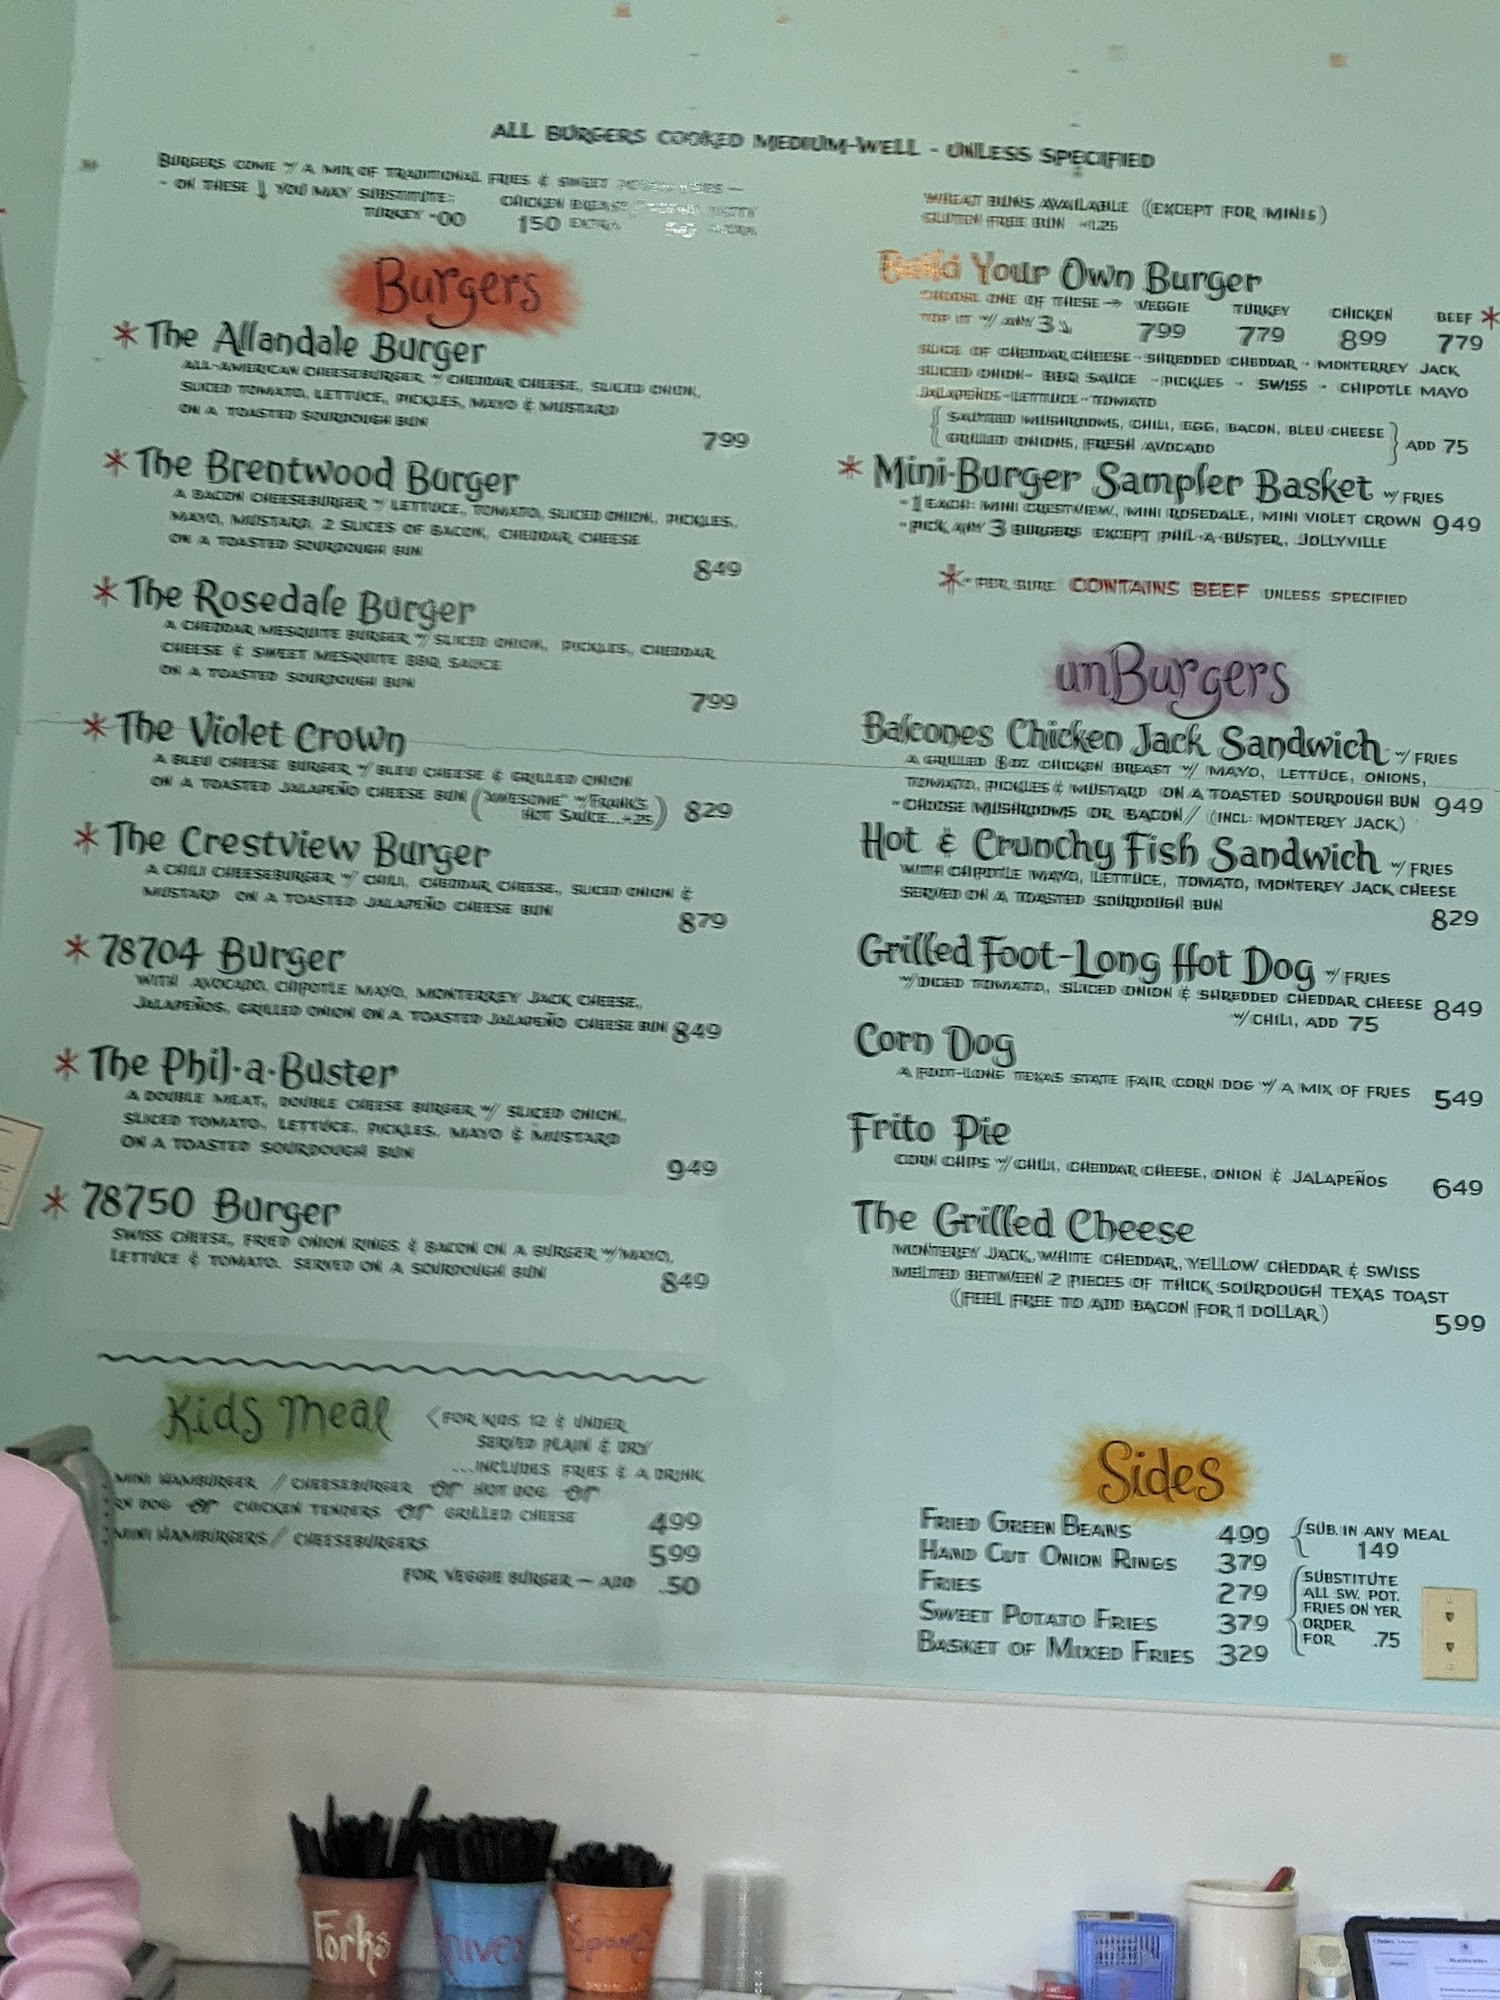 ALL BURGERS COOKED MEDIUM-WELL - UNLESS SPECIFIED
BURGERS COME W/ A MIX OF TRADITIONAL FRIES & SWEET
- ON THESE ↓ YOU MAY SUBSTITUTE:
TURKEY -00
CHICKEN BREAST
150 EXTRA
Burgers
* The Allandale Burger
ALL-AMERICAN CHEESEBURGER W/ CHEDDAR CHEESE, SLICED ONION,
SLICED TOMATO, LETTUCE, PICKLES, MAYO & MUSTARD
ON A TOASTED SOURDOUGH BUN
799
* The Brentwood Burger
A BACON CHEESEBURGER W/ LETTUCE, TOMATO, SLICED ONION, PICKLES,
MAYO, MUSTARD, 2 SLICES OF BACON, CHEDDAR CHEESE
ON A TOASTED SOURDOUGH BUN
849
* The Rosedale Burger
A CHEDDAR MESQUITE BURGER W/ SLICED ONION, PICKLES, CHEDDAR
CHEESE & SWEET MESQUITE BBQ SAUCE
ON A TOASTED SOURDOUGH BUN
799
* The Violet Crown
A BLEU CHEESE BURGER W/ BLEU CHEESE & GRILLED ONION
ON A TOASTED JALAPEÑO CHEESE BUN ("AWESOME" W/ FRANK'S
HOT SAUCE...+25) 829
* The Crestview Burger
A CHILI CHEESEBURGER W/ CHILI, CHEDDAR CHEESE, SLICED ONION &
MUSTARD ON A TOASTED JALAPEÑO CHEESE BUN
879
* 78704 Burger
WITH AVOCADO, CHIPOTLE MAYO, MONTERREY JACK CHEESE,
JALAPEÑOS, GRILLED ONION ON A TOASTED JALAPEÑO CHEESE BUN 849
* The Phil-a-Buster
A DOUBLE MEAT, DOUBLE CHEESE BURGER W/ SLICED ONION,
SLICED TOMATO, LETTUCE, PICKLES, MAYO & MUSTARD
ON A TOASTED SOURDOUGH BUN
949
* 78750 Burger
SWISS CHEESE, FRIED ONION RINGS & BACON ON A BURGER W/ MAYO,
LETTUCE & TOMATO. SERVED ON A SOURDOUGH BUN
849
Kids Meal
<FOR KIDS 12 & UNDER
SERVED PLAIN & DRY
...INCLUDES FRIES & A DRINK
MINI HAMBURGER / CHEESEBURGER or HOT DOG or
RN DOG or CHICKEN TENDERS or GRILLED CHEESE 499
MINI HAMBURGERS / CHEESEBURGERS 599
FOR VEGGIE BURGER — ADD .50
WHEAT BUNS AVAILABLE (EXCEPT FOR MINIS)
GLUTEN FREE BUN +1.25
Build Your Own Burger
CHOOSE ONE OF THESE → VEGGIE TURKEY CHICKEN BEEF *
TOP IT W/ ANY 3 ↘ 799 779 899 779
SLICE OF CHEDDAR CHEESE - SHREDDED CHEDDAR - MONTERREY JACK
SLICED ONION - BBQ SAUCE - PICKLES - SWISS - CHIPOTLE MAYO
JALAPEÑOS - LETTUCE - TOMATO
{SAUTEED MUSHROOMS, CHILI, EGG, BACON, BLEU CHEESE
GRILLED ONIONS, FRESH AVOCADO} ADD 75
* Mini-Burger Sampler Basket W/ FRIES
- 1 EACH: MINI CRESTVIEW, MINI ROSEDALE, MINI VIOLET CROWN 949
- PICK ANY 3 BURGERS EXCEPT PHIL-A-BUSTER, JOLLYVILLE
* - FER SURE CONTAINS BEEF UNLESS SPECIFIED
unBurgers
Balcones Chicken Jack Sandwich W/ FRIES
A GRILLED 8OZ CHICKEN BREAST W/ MAYO, LETTUCE, ONIONS,
TOMATO, PICKLES & MUSTARD ON A TOASTED SOURDOUGH BUN 949
- CHOOSE MUSHROOMS OR BACON/ (INCL: MONTEREY JACK)
Hot & Crunchy Fish Sandwich W/ FRIES
WITH CHIPOTLE MAYO, LETTUCE, TOMATO, MONTEREY JACK CHEESE
SERVED ON A TOASTED SOURDOUGH BUN
829
Grilled Foot-Long Hot Dog W/ FRIES
W/ DICED TOMATO, SLICED ONION & SHREDDED CHEDDAR CHEESE 849
W/ CHILI, ADD 75
Corn Dog
A FOOT-LONG TEXAS STATE FAIR CORN DOG W/ A MIX OF FRIES 549
Frito Pie
CORN CHIPS W/ CHILI, CHEDDAR CHEESE, ONION & JALAPEÑOS 649
The Grilled Cheese
MONTEREY JACK, WHITE CHEDDAR, YELLOW CHEDDAR & SWISS
MELTED BETWEEN 2 PIECES OF THICK SOURDOUGH TEXAS TOAST
(FEEL FREE TO ADD BACON FOR 1 DOLLAR)
599
Sides
FRIED GREEN BEANS 499
HAND CUT ONION RINGS 379
FRIES 279
SWEET POTATO FRIES 379
BASKET OF MIXED FRIES 329
{SUB. IN ANY MEAL
149
{SUBSTITUTE
ALL SW. POT.
FRIES ON YER
ORDER
FOR .75
Forks
Knives
Spoons